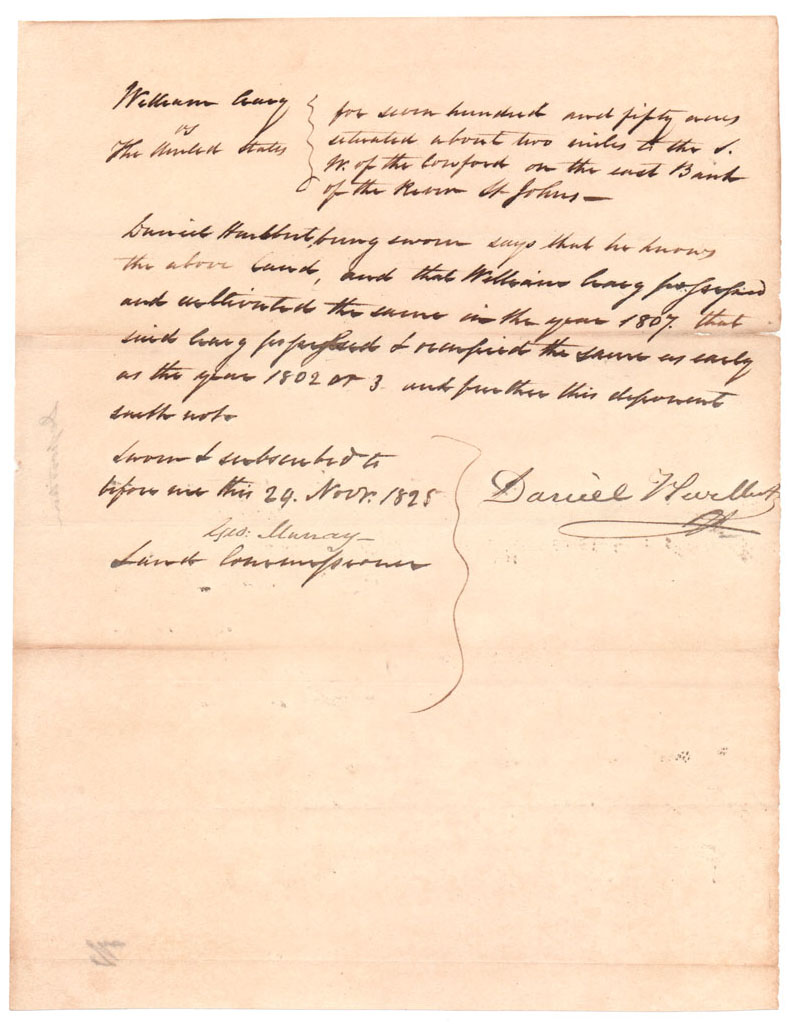 William Craig
vs
The United States
for seven hundred and fifty acres
situated about two miles to the S.
W. of the Cowford on the east Bank
of the River St Johns—
Daniel Hurlbut, being sworn says that he knows
the above land, and that William Craig possessed
and cultivated the same in the year 1807. that
said Craig possessed & occupied the same as early
as the year 1802 or 3 and further this deponent
saith not.
Sworn & subscribed to
before me this 29. Novr. 1825
Geo: Murray
Land Commissioner
Daniel Hurlbut